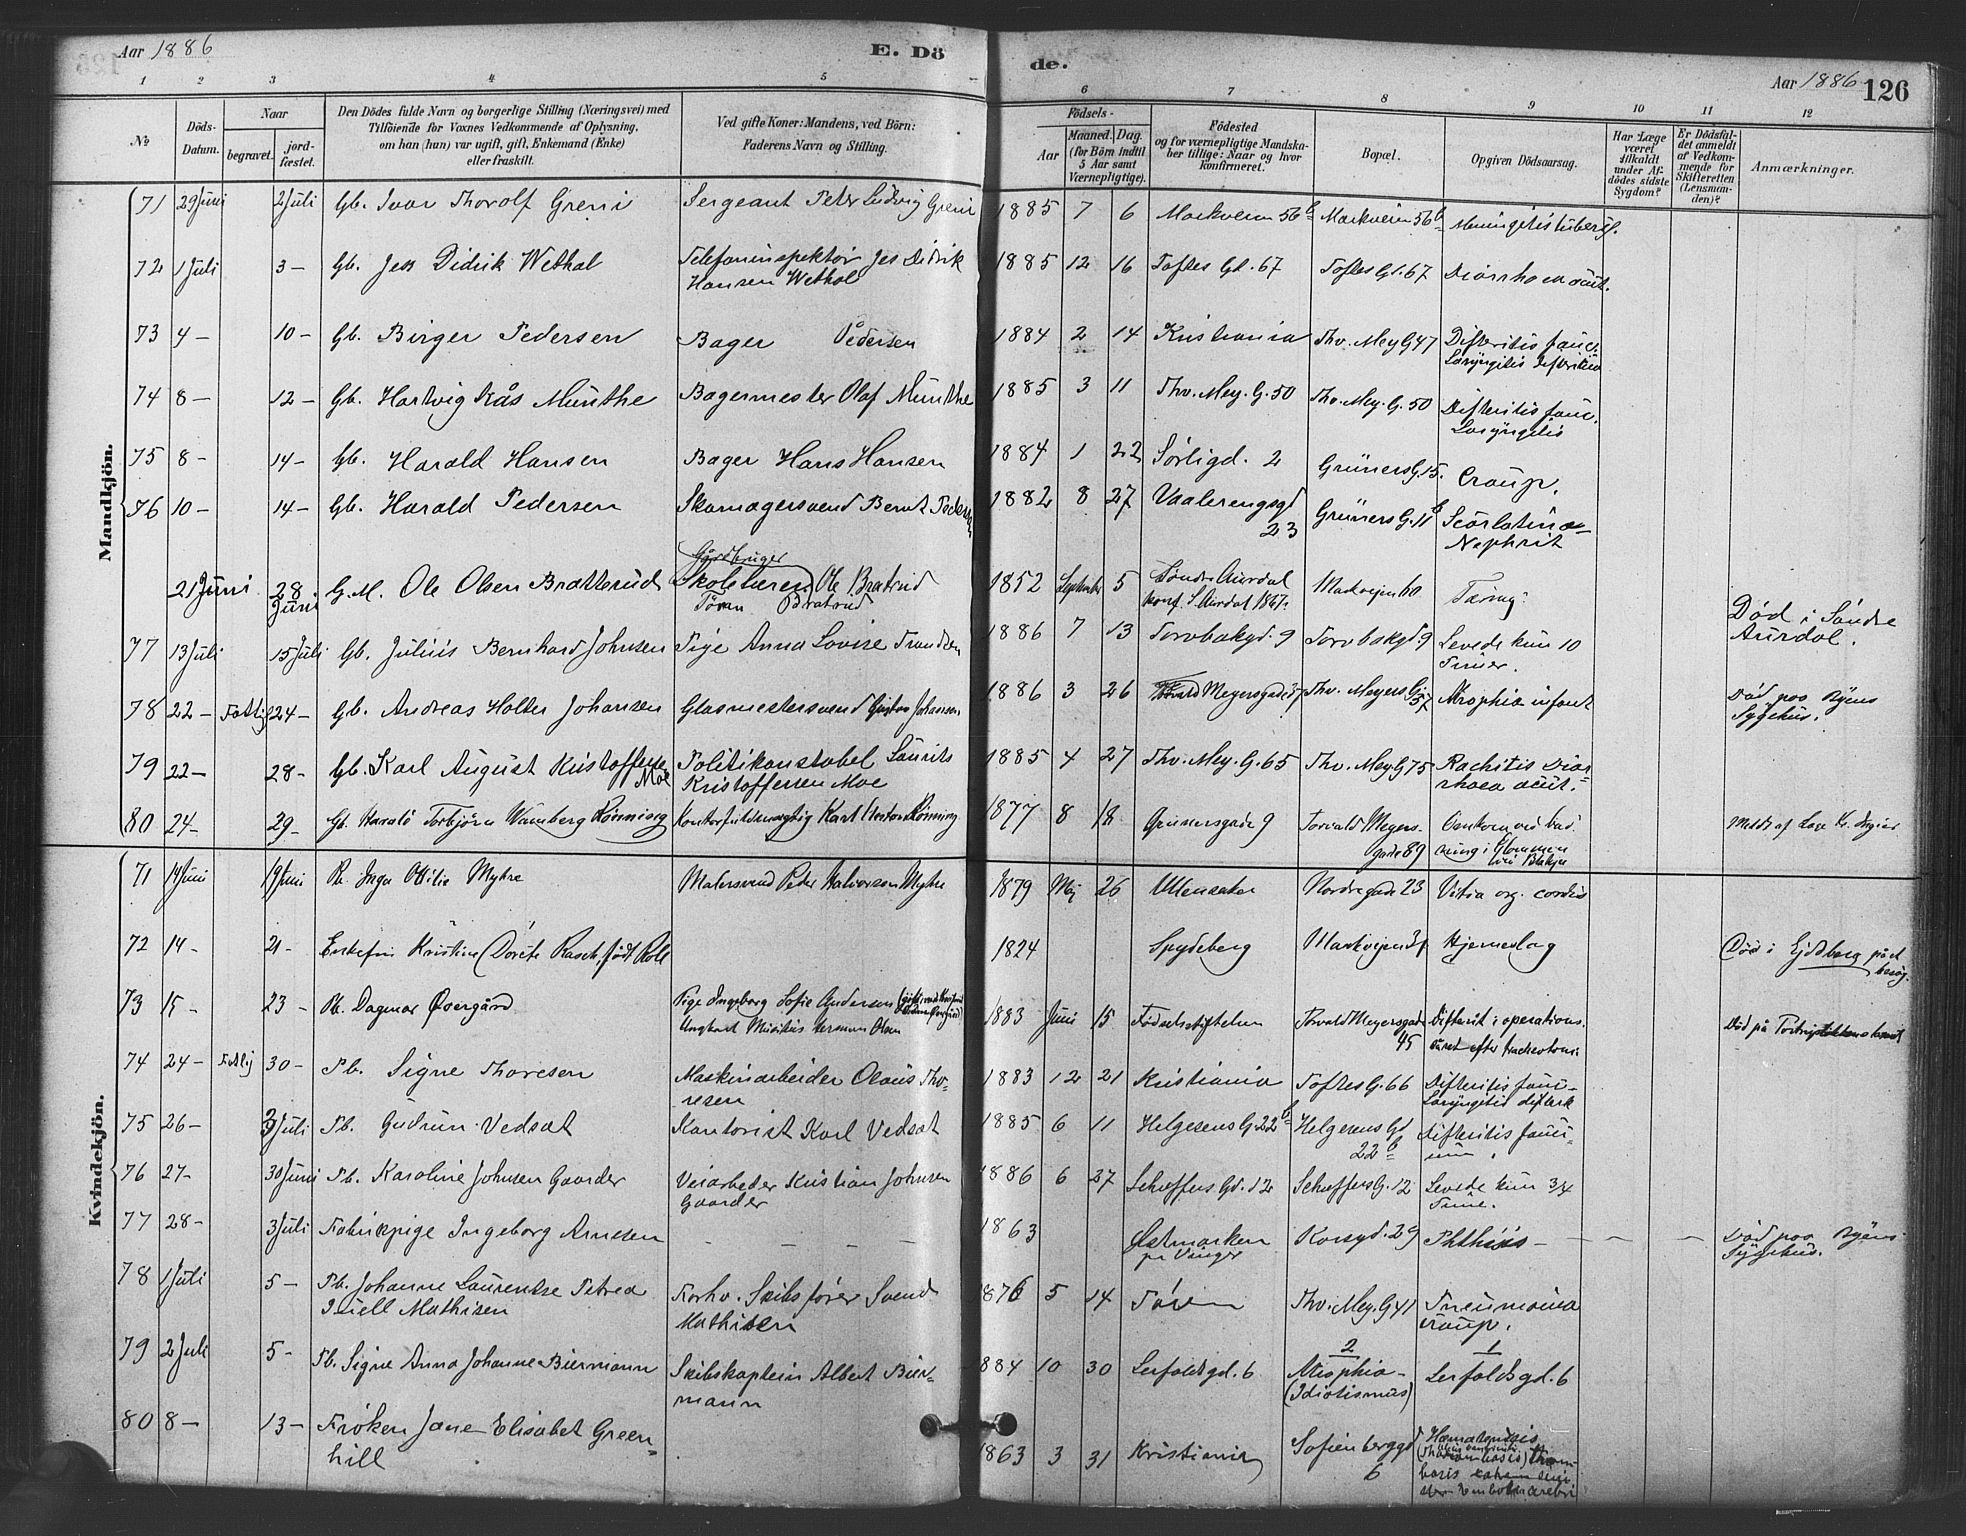 Aar 1886
E. Dö
de.
Aar 1886
126
1 2 3 4 5 6 7 8 9 10 11 12
No.
Döds-Datum.
Naar
begravet.
jordfæstet.
Den Dödes fulde Navn og borgerlige Stilling (Næringsvei) med
Tilföiende for Voxnes Vedkommende af Oplysning,
om han (hun) var ugift, gift, Enkemand (Enke)
eller fraskilt.
Ved gifte Koner: Mandens, ved Börn:
Faderens Navn og Stilling.
Födsels-
Aar
Maaned.
Dag.
(for Börn indtil
5 Aar samt
Værnepligtige).
Födested
og for værnepligtige Mandska-
ber tillige: Naar og hvor
konfirmeret.
Bopæl.
Opgiven Dödsaarsag.
Har Læge
været
tilkaldt
under Af-
dödes sidste
Sygdom?
Er Dödsfal-
det anmeldt
af Vedkom-
mende for
Skifteretten
(Lensman-
den)?
Anmærkninger.
Mandkjön.
71 29 Juni 2 Juli Gb. Ivar Thorolf Greni Sergeant Peter Ludvig Greni 1885 7 6 Markveien 56 b Markveien 56 b Meningitis tuberc.
72 1 Juli 3 – Gb. Jes Didrik Wethal Telefoninspektör Jes Didrik
Hansen Wethal 1885 12 16 Toftes Gd. 67 Toftes Gd. 67 Diarrhoea acut.
73 4 – 10 – Gb. Birger Pedersen Bager Pedersen 1884 2 14 Kristiania Thv. Mey G 47 Difteritis fauc.
Laryngitis
74 8 – 12 – Gb. Hartvig Kås Münthe Bagermester Olaf Münthe 1885 3 11 Thv. Mey. G. 50 Thv. Mey. G. 50 Difteritis fauc.
Laryngitis
75 8 – 14 – Gb. Harald Hansen Bager Hans Hansen 1884 1 22 Sørligd. 2 Grüners G. 15. Croup.
76 10 – 14 – Gb. Harald Pedersen Skomagersvend Bernt Pedersen 1882 8 27 Vaalerengsgd
23 Grüners G. 11 b Scarlatina
Nephrit
Gårdbruger
21 Juni 28 Juni G.M. Ole Olsen Bratterud Ole Bratrud
Bratrud 1852 September 5 Søndre Aurdal
konf. S. Aurdal 1867. Markveien 60 Tæring. Død i Søndre
Aurdal.
77 13 Juli 15 Juli Gb. Julius Bernhard Johnsen Pige Anna Lovise Frandsen 1886 7 13 Torvbakgd. 9 Torvbakgd 9 Levede kun 10
Timer.
78 22 – Fattig 24 – Gb. Andreas Holter Johansen Glasmestersvend Gustav Johansen 1886 3 26 Thorvald Meyersgade 37 Thv. Meyers G.
37 Atrophia infant Død paa Byens
Sygehus.
79 22 – 28 – Gb. Karl August Kristoffersen
Moe Politikonstabel Laurits
Kristoffersen Moe 1885 4 27 Thv. Mey. G. 65 Thv. Mey G 75 Rachitis Diar-
rhoea acut.
80 24 – 29 – Gb. Harald Torbjörn Wamberg Rönning Kontorfuldmægtig Karl Rönning 1877 8 18 Grunersgade 9 Torvald Meyers-
gade 89 Omkom ved bad-
ning i Glommen
Meldt af
Kvindekjön.
71 14 Juni 19 Juni Pb. Inga Otilie Myhre Malersvend Peder Halvorsen Myhre 1879 Maj 26 Ullensaker Nordregade 23 Vitia org. cordis
72 14 – 21 – Enkefru Kristine Dorete Rasch, født 1824 Spydeberg Markvejen Hjerneslag Død i Ejdsberg på et
besøg.
73 15 – 23 – Pb. Dagmar Øvergård Pige Ingeborg Sofie Andersen
Ungkarl Musikus Herman Olsen 1883 Juni 15 Fødselsstiftelsen Torvald Meyersgade
45 Difterit i operations-
såret efter tracheotomi
Død på
74 24 – Fattig 30 – Pb. Signe Thoresen Maskinarbeider Olaus Tho-
resen 1883 12 21 Kristiania Toftes G. 66 Difteritis fauc-
Laryngitis
75 26 – 3 Juli Pb. Gudrun Vedsat Kontorist Karl Vedsat 1885 6 11 Helgesens G. 22 b Helgesens Gd
22 b Difteritis fauci-
um.
76 27 – 30 Juni Pb. Karoline Johnsen Gaarder Veiarbeder Kristian Johnsen
Gaarder 1886 6 27 Schæffers Gd. 12 Schæffers G. 12 Levede kun 3/4
Time.
77 28 – 3 Juli Fabrikpige Ingeborg Arnesen – – – – 1863 Østmarken
pr Vinger Korsgd. 29 Phthisis – – – – Død paa Byens
Sygehus.
78 1 Juli 5 – Pb. Johanne Laurentse Petrea
Mathisen Forhv. Skibsfører Svend
Mathisen 1876 5 14 Thv. Mey. G 41 Pneumonia
croup.
79 2 Juli 5 – Pb. Signe Anna Johanne Biermann Skibskaptein Albert Bier-
mann 884 10 30 Lerfaldsgd. 6 2
Atrophia
(Idiotismus) 1
Lerfaldsgd. 6
80 8 – 13 – Frøken Jane Elisabet Green-
hill 1863 3 31 Kristiania Sofienberggd
6